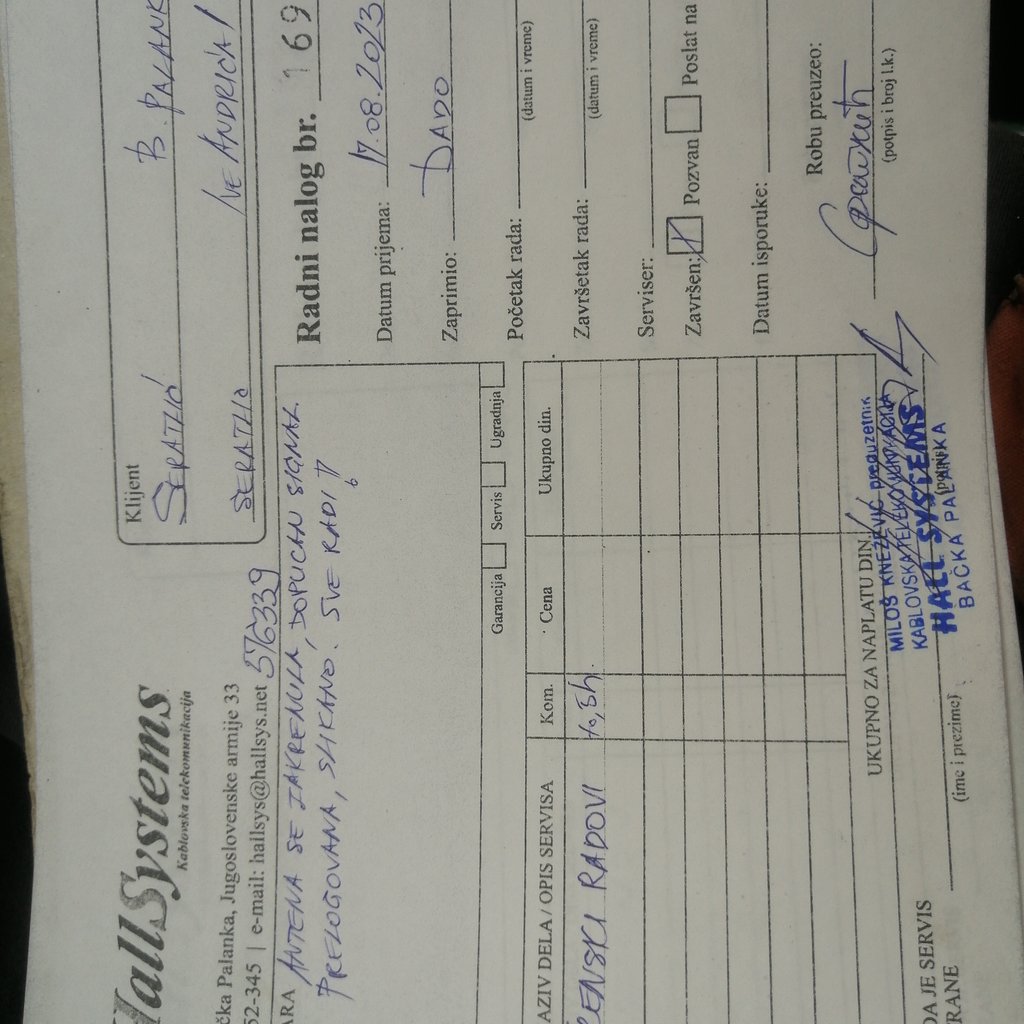 HallSystems
Kablovska telekomunikacija
čka Palanka, Jugoslovenske armije 33
52-345 | e-mail: hallsys@hallsys.net 576339
Klijent
B. PALANK
VE ANDRIĆA 1
Radni nalog br. 169
ARA ANTENA SE ZAKRENULA, DOPUCAN SIGNAL
PRELOGOVANA, SLIKANO. SVE RADI
Garancija Servis Ugradnja
Datum prijema: 17.08.2023
Zaprimio: DADO
Početak rada:
(datum i vreme)
Završetak rada:
(datum i vreme)
Serviser:
Završen: X Pozvan Poslat na
Datum isporuke:
Robu preuzeo:
(potpis i broj l.k.)
AZIV DELA / OPIS SERVISA Kom. Cena Ukupno din.
RENSKI RADOVI
UKUPNO ZA NAPLATU DIN.
MILOŠ KNEŽEVIĆ preduzetnik
KABLOVSKA TELEKOMUNIKACIJA
HALL SYSTEMS
BAČKA PALANKA
(potpis)
DA JE SERVIS
RANE
(ime i prezime)